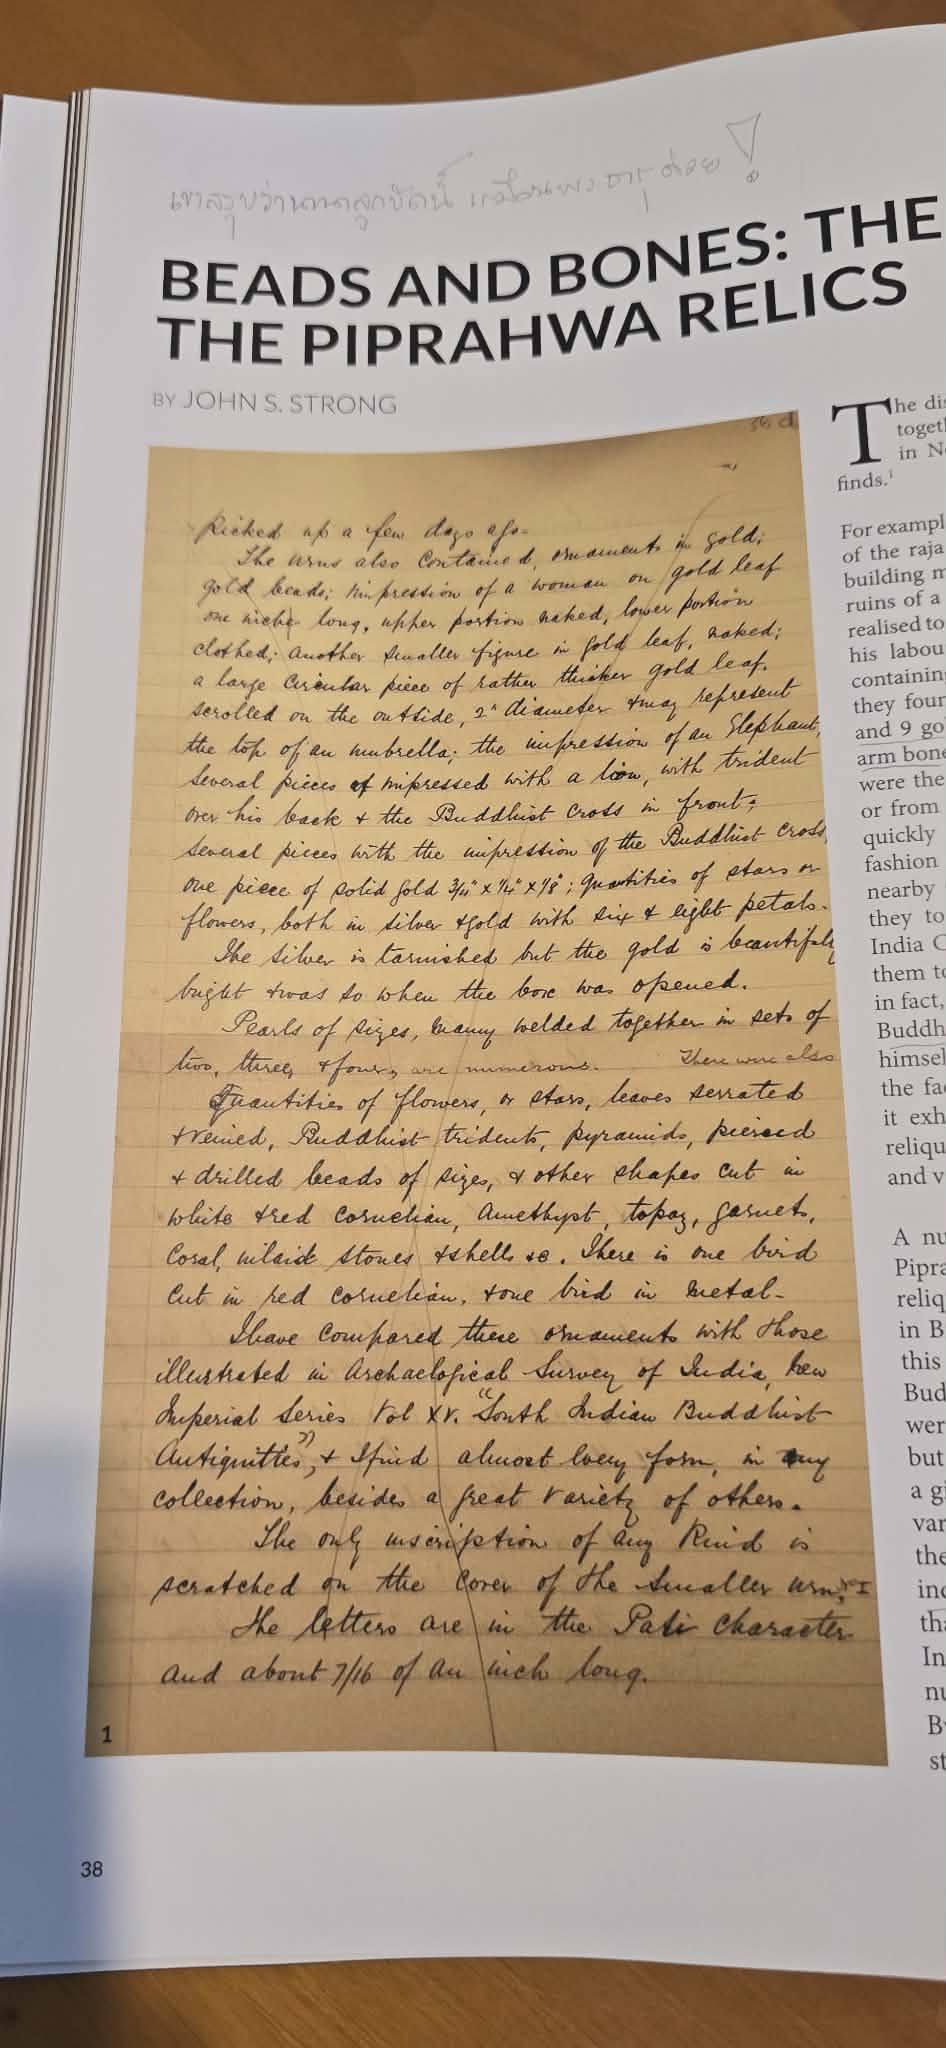 เขาสรุปว่า ลูกปัดนี้ เหมือนพระธาตุ ด้วย !
BEADS AND BONES: THE
THE PIPRAHWA RELICS
BY JOHN S. STRONG
picked up a few days ago.
The urns also contained, ornaments in gold;
gold beads; impression of a woman on gold leaf
one inch long, upper portion naked, lower portion
clothed; another smaller figure in gold leaf, naked;
a large circular piece of rather thicker gold leaf,
scrolled on the outside, 2" diameter & may represent
the top of an umbrella; the impression of an Elephant,
several pieces impressed with a lion, with trident
over his back & the Buddhist cross in front;
several pieces with the impression of the Buddhist cross,
one piece of solid gold 3/4" x 1/4" x 1/8"; quantities of stars or
flowers, both in silver & gold with six & eight petals.
The silver is tarnished but the gold is beautifully
bright & was so when the box was opened.
Pearls of sizes, many welded together in sets of
two, three, & four, are numerous. There were also
Quantities of flowers, or stars, leaves serrated
& veined, Buddhist tridents, pyramids, pierced
& drilled beads of sizes, & other shapes cut in
white & red cornelian, Amethyst, topaz, garnets,
Coral, inlaid stones & shells &c. There is one bird
cut in red cornelian, & one bird in metal-
I have compared these ornaments with those
illustrated in Archaelogical Survey of India, New
Imperial Series Vol XV. "South Indian Buddhist
Antiquities", & I find almost every form, in my
collection, besides a great variety of others.
The only inscription of any kind is
scratched on the cover of the smaller urn,
The letters are in the Pali character
and about 7/16 of an inch long.
1
38
The dis
toget
in N
finds.¹
For exampl
of the raja
building m
ruins of a
realised to
his labou
containing
they four
and 9 go
arm bone
were the
or from
quickly
fashion
nearby
they to
India C
them to
in fact,
Buddh
himsel
the fac
it exh
reliqu
and v
A nu
Pipra
reliq
in B
this
Bud
wer
but
a gi
var
the
inc
tha
In
nu
By
st